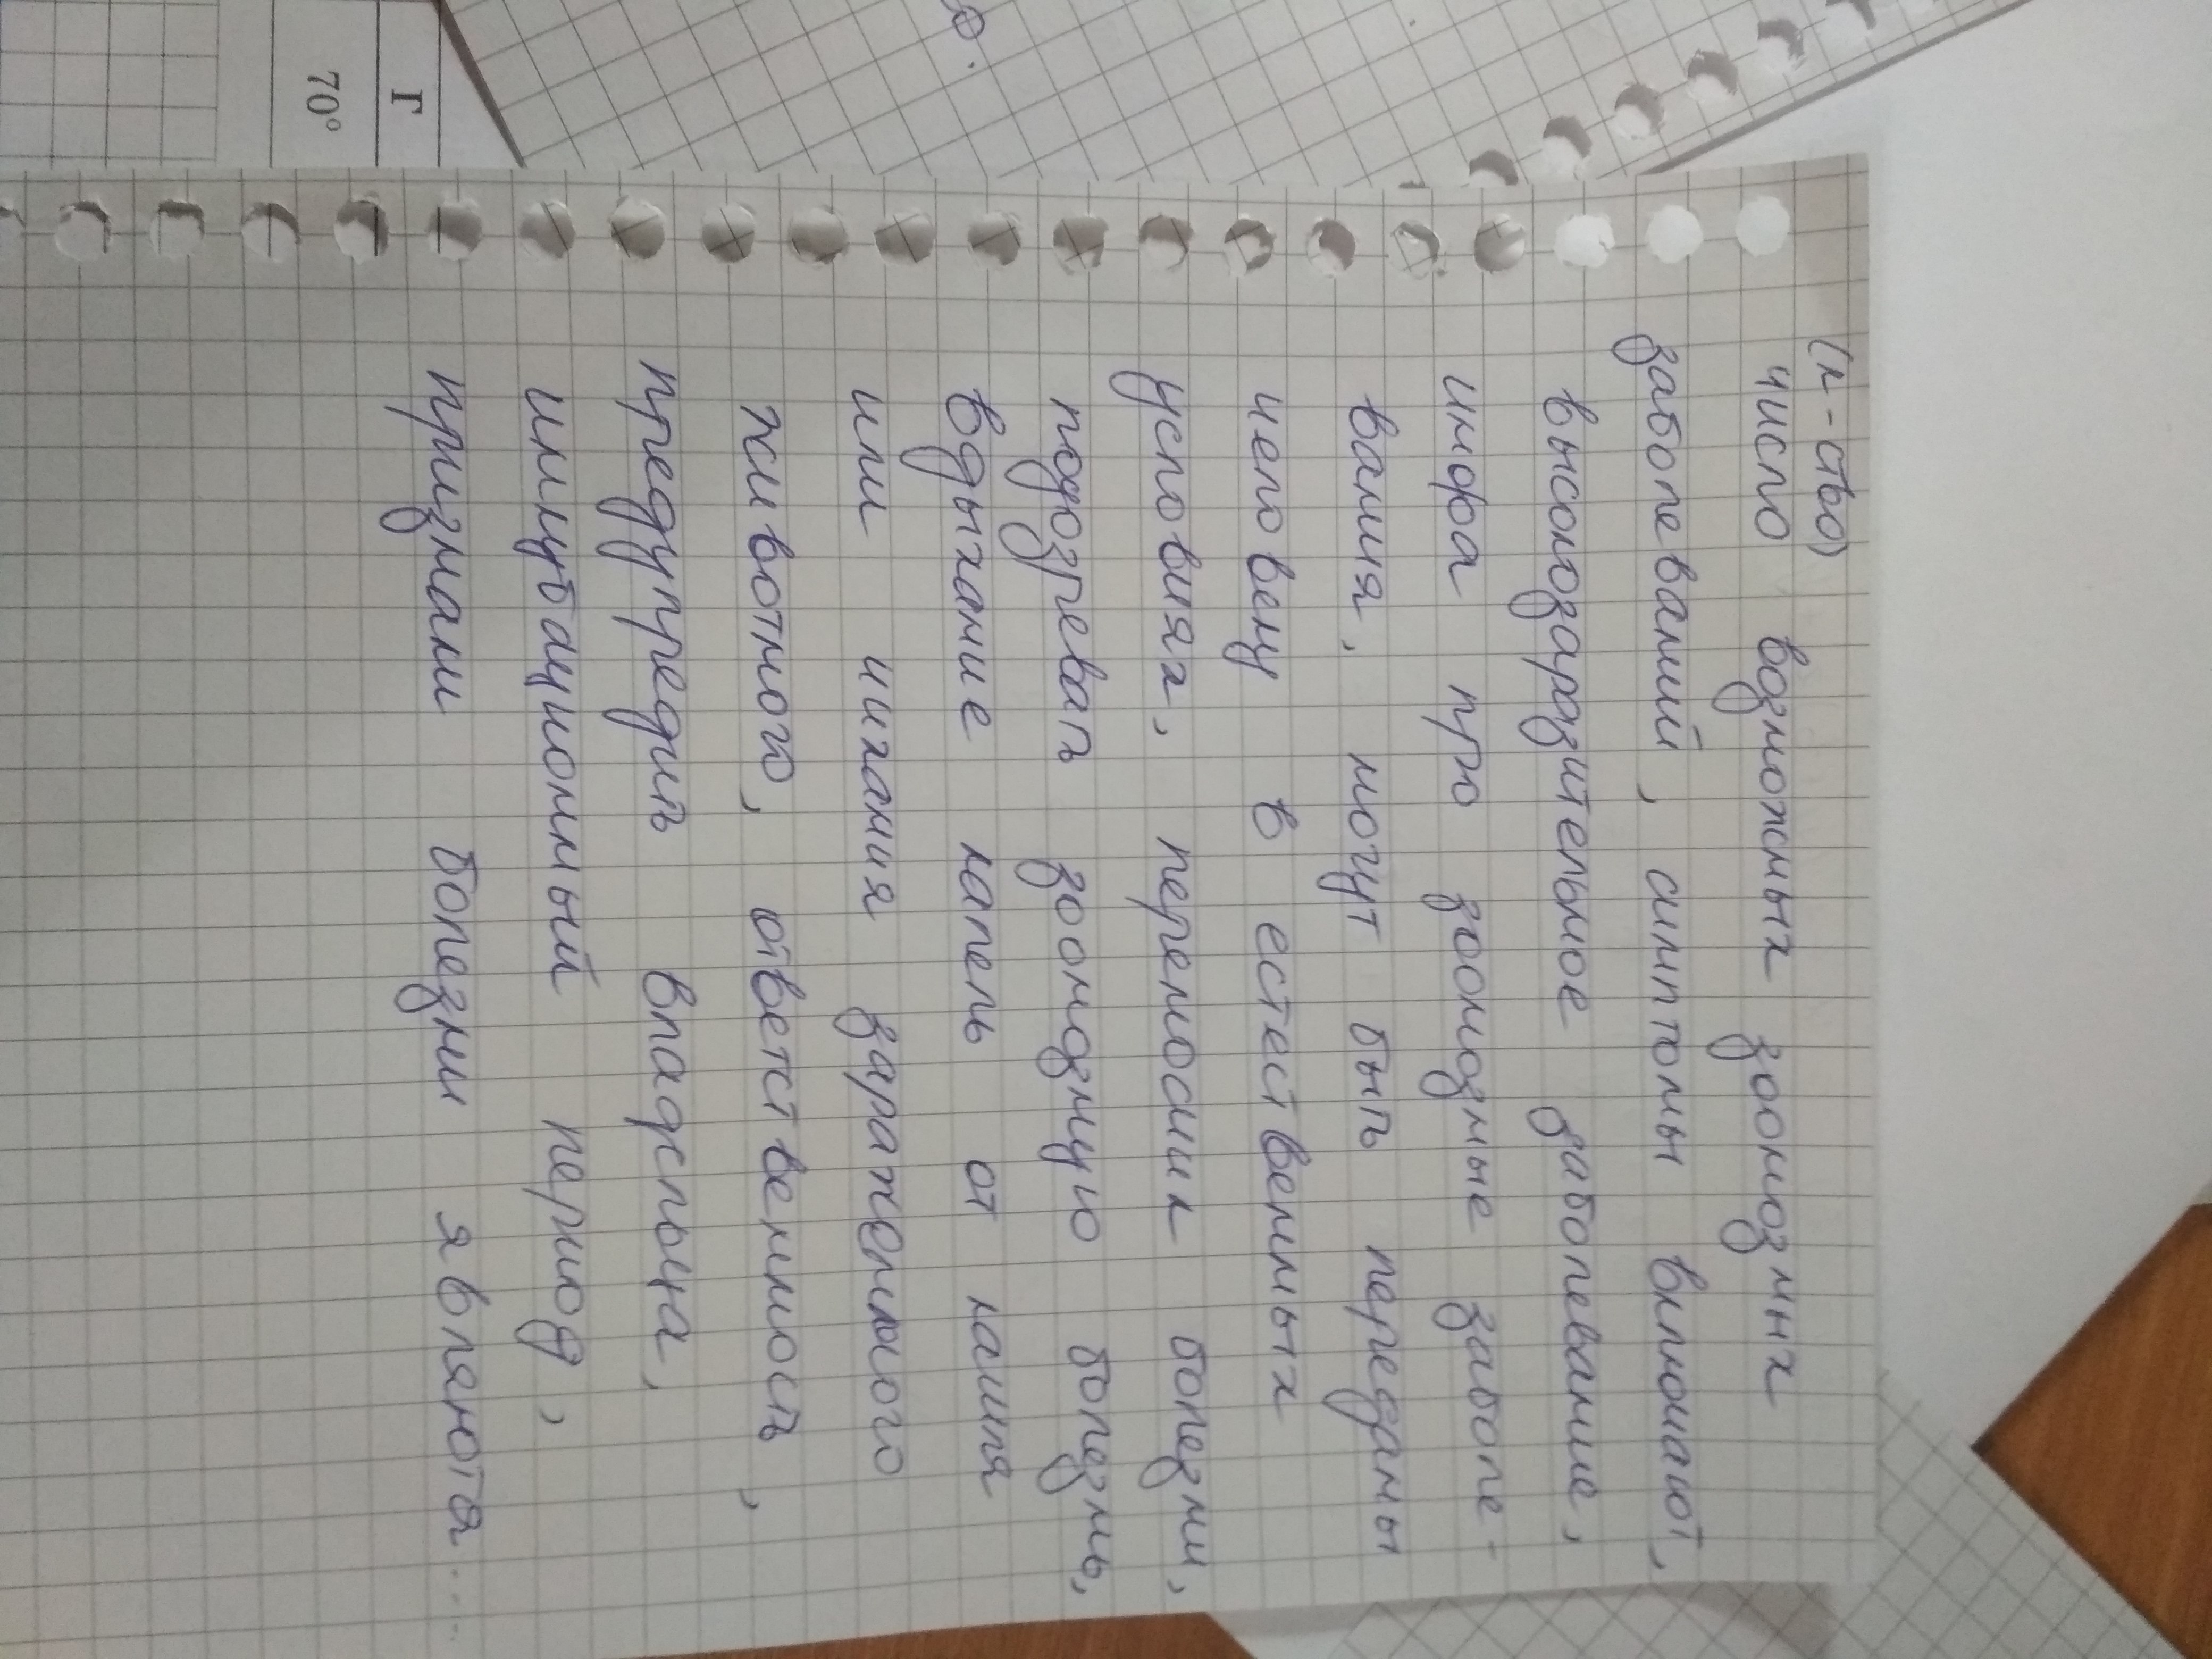 (к-ство)
число возможных зоонозных
заболеваний, симптомы включают,
высокозаразительное заболевание,
инфа про зоонозные заболе-
вания, могут быть переданы
человеку в естественных
условиях, переносчик болезни,
подозревать зоонозную болезнь,
вдыхание капель от кашля
или чихания зараженного
животного, ответственность,
предупредить владельца,
инкубационный период,
признаки болезни являются...
Г
70°